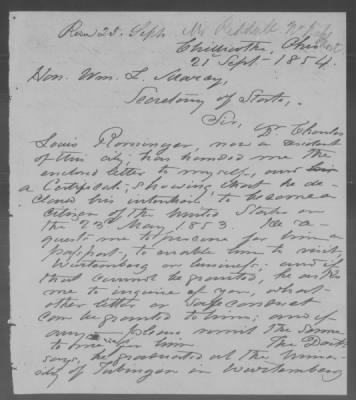 Recd 23. Sept. Mr
Chillicothe, Ohio
21 Sept. 1854.
Hon. Wm. L. Marcy,
Secretary of State,
Sir, Dr. Charles
Louis Rominger, now a resident
of this city, has handed me the
enclosed letter to myself, and
a Certificate, showing that he de-
clared his intention to become a
citizen of the United States on
the 23d May 1853. He re
quests me to procure for him a
passport, to enable him to visit
Wurtemberg on business; and if
that cannot be granted, he asks
me to inquire of you what
other letter or safe conduct
can be granted to him; and if
any please remit the same
to me for him. The Doct.
says, he graduated at the Univer
sity of Tubingen in Wurtemberg